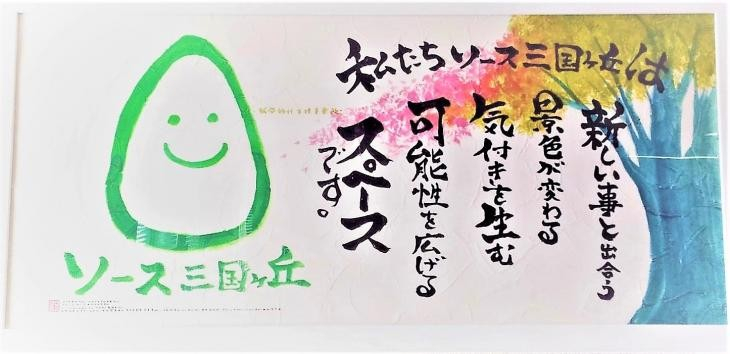 私たちソース三国ヶ丘は
新しい事と出合う
景色が変わる
気付きを生む
可能性を広げる
スペース
です。
ソース三国ヶ丘